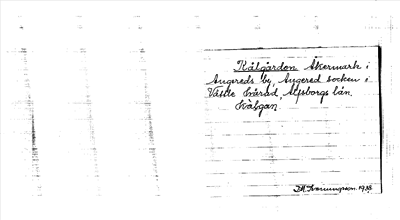 Kålgården Åkermark i
Angereds by, Angered socken i
Vättle härad, Älfsborgs län.
Kålgan
1938